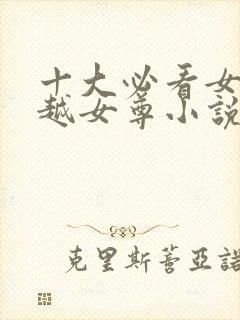 十大必看女
越女尊小說
克里斯蒂亞諾